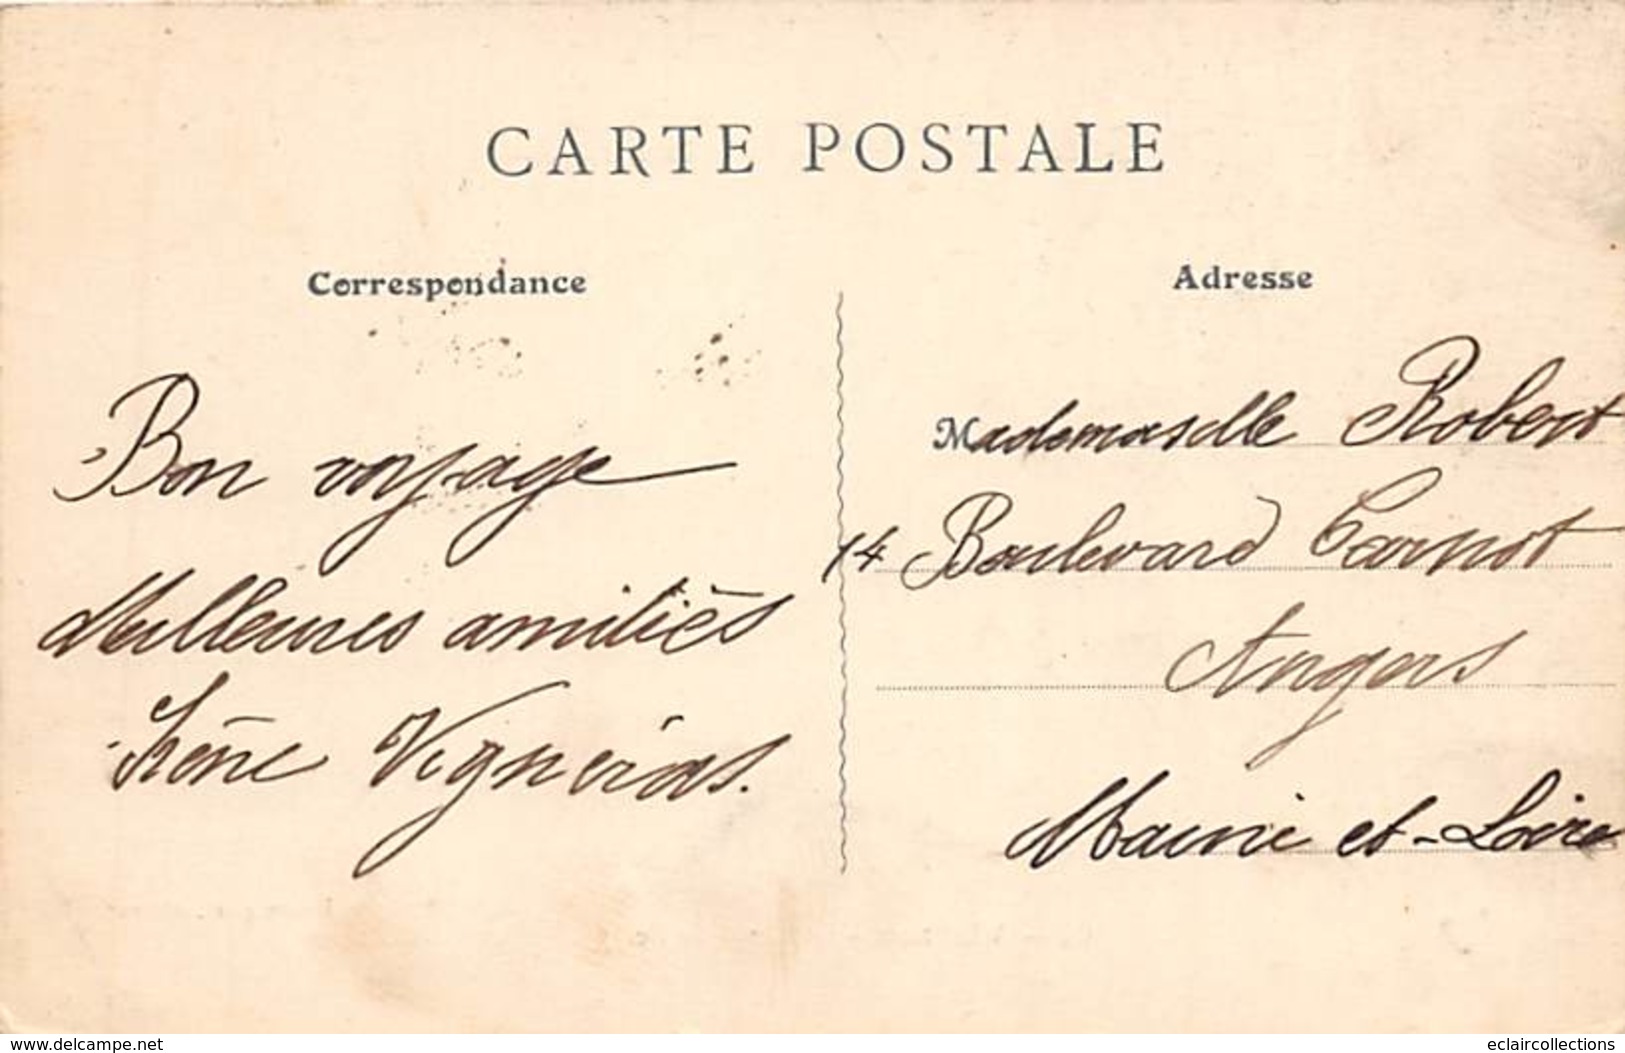 CARTE POSTALE
Correspondance
Bon voyage
Meilleures amitiés
Irène Vigneras.
Adresse
Mademoiselle Robert
14 Boulevard Carnot
Angers
Maine et-Loire
www.delcampe.net
eclaircollections